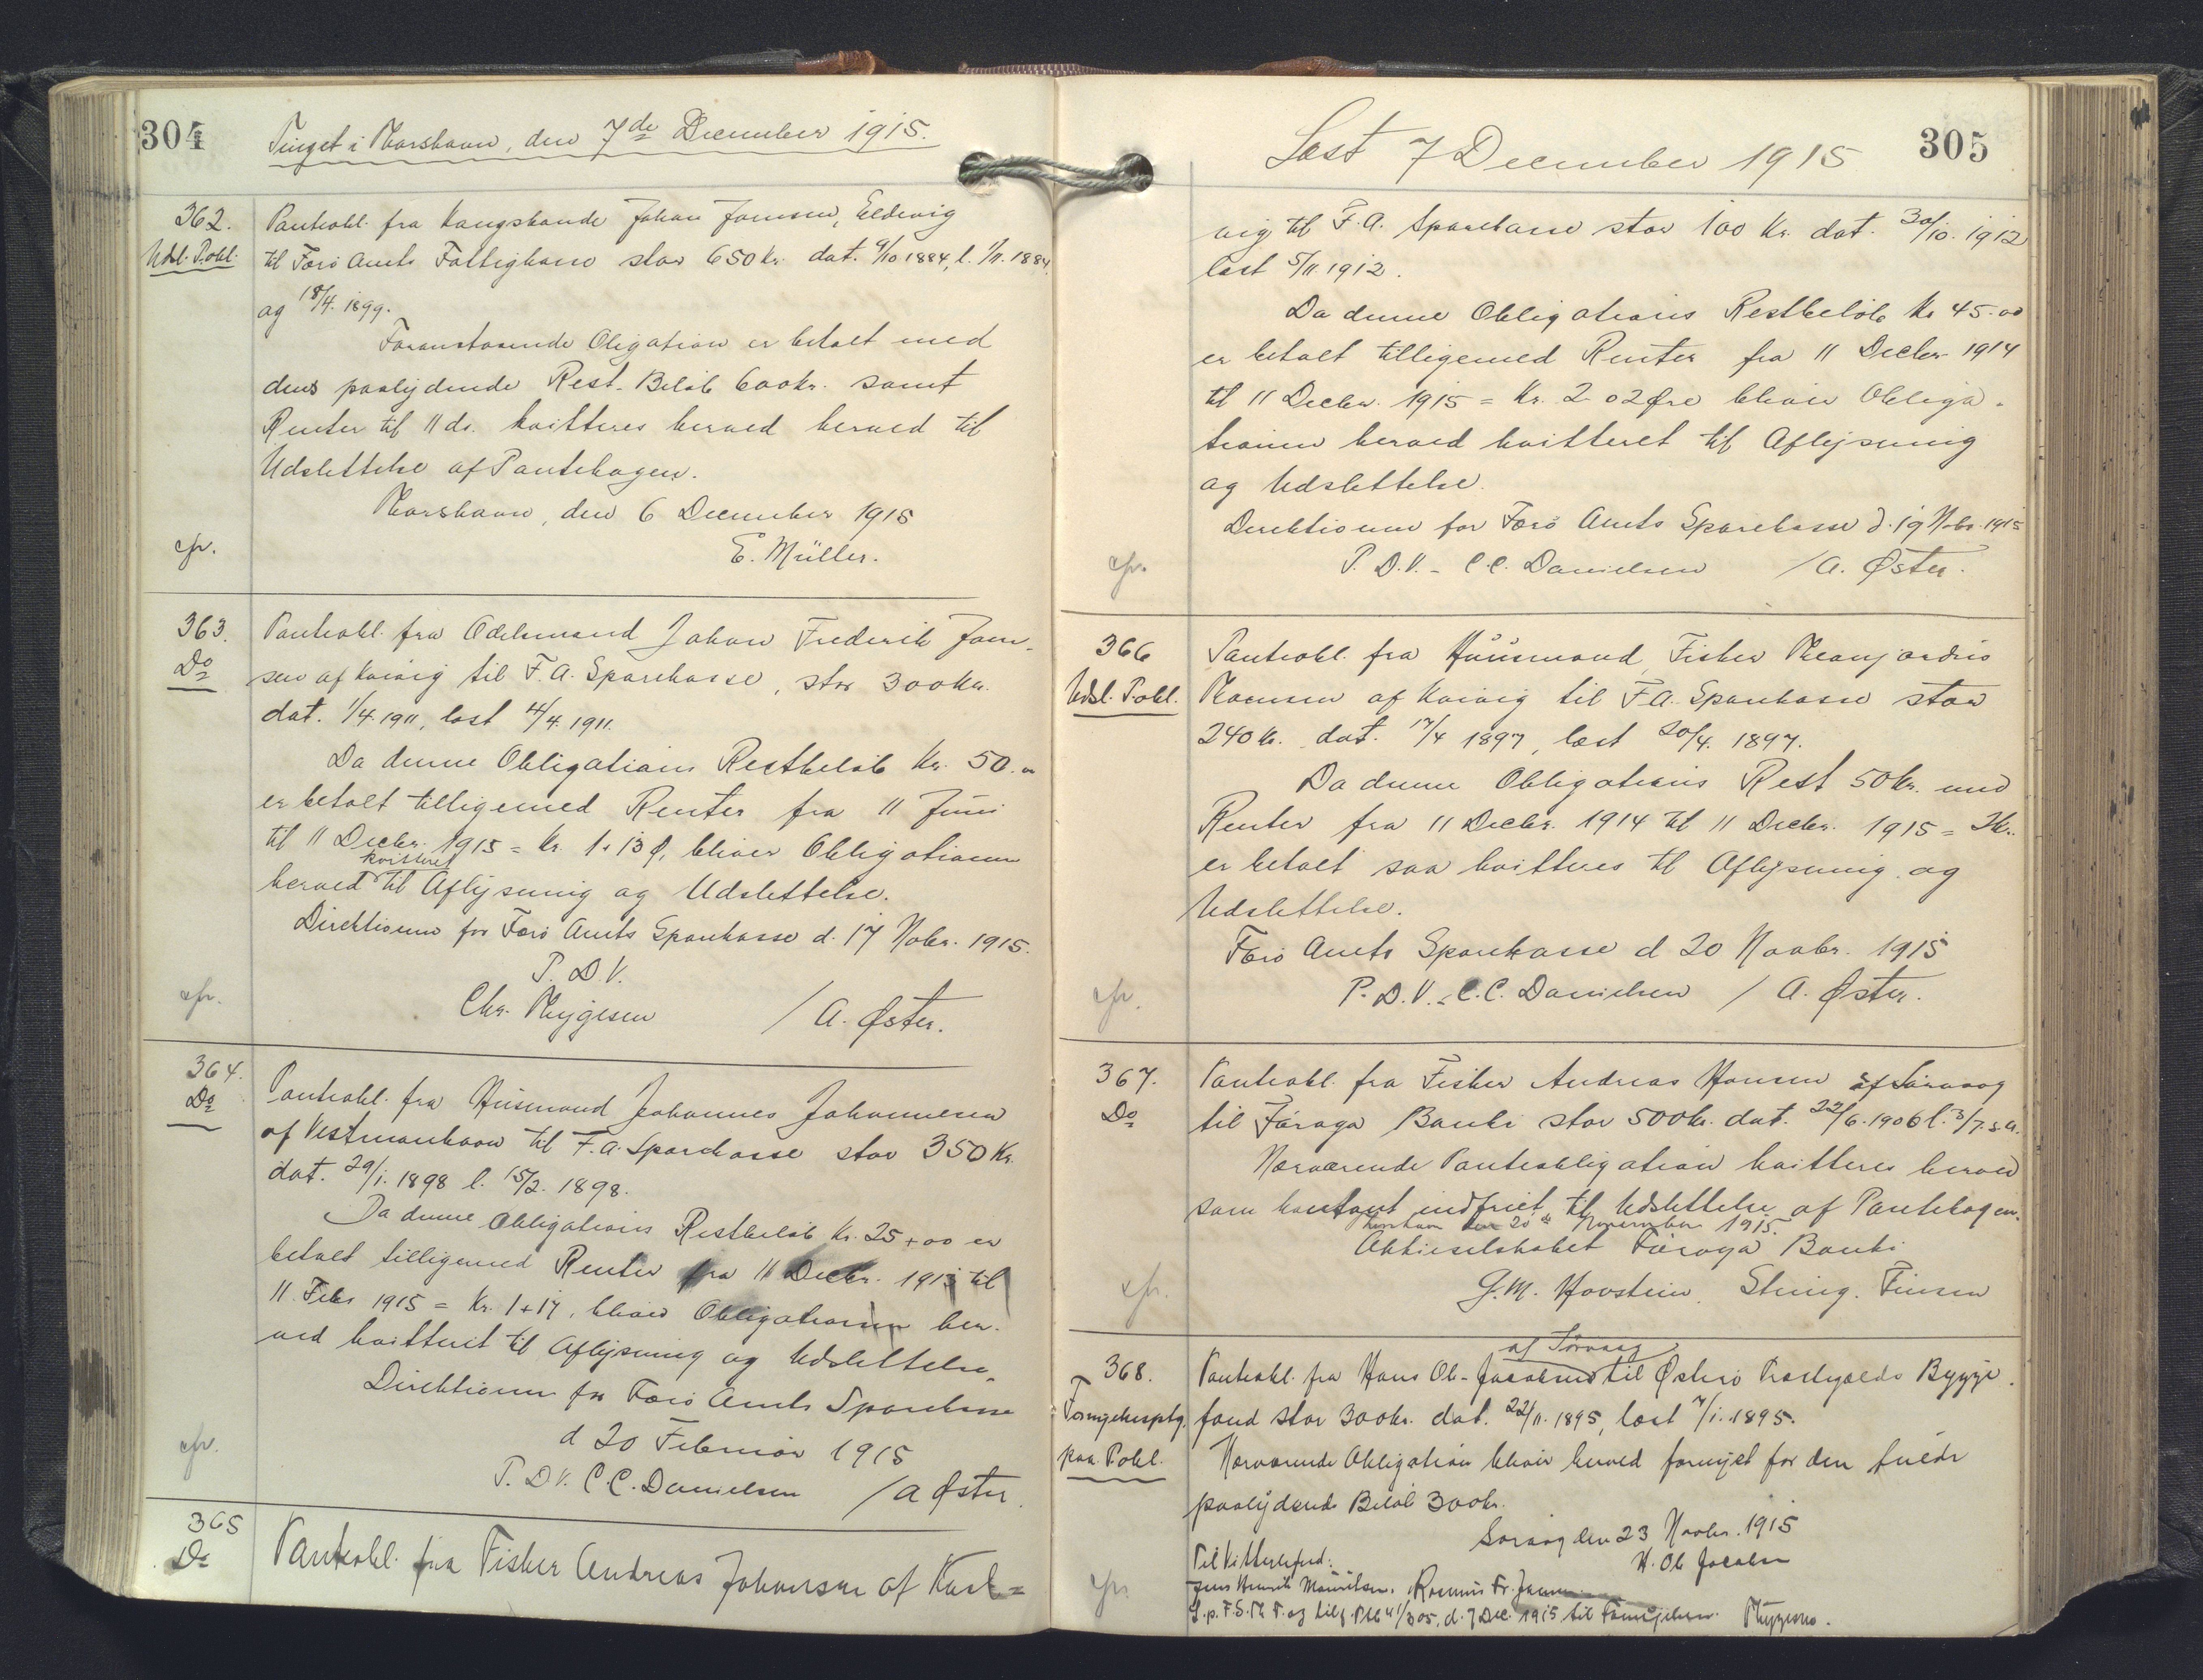 304
Tinget i Thorshavn, den 7de December 1915.
362.
Udsl. P.obl.
Panteobl. fra Kongsbonde Johan Joensen, Eldevig
til Færø Amts Fattigkasse stor 650 Kr. dat. 9/10 1884, l. 1/11. 1884
og 18/4. 1899.
Foranstaaende Obligation er betalt med
dens paalydende Rest-Beløb 600 kr. samt
Renter til 11 ds. kvitteres herved herved til
Udslettelse af Pantebogen.
Thorshavn, den 6 December 1915
E. Müller.
cfr.
363.
Do
Panteobl. fra Odelsmand Johan Frederik Joen-
sen af Kvivig til F. A. Sparekasse, stor 300 Kr.
dat. 1/4. 1911, læst 4/4. 1911.
Da denne Obligations Restbeløb Kr. 50.00
er betalt tilligemed Renter fra 11 Juni
til 11 Decbr. 1915 = Kr. 1.13 Ø, bliver Obligationen
kvitteret
herved til Aflysning og Udslettelse.
Direktionen for Færø Amts Sparekasse d. 17 Nobr. 1915.
P. D. V.
Chr. Thygesen / A. Øster.
cfr.
364.
Do
Panteobl. fra Husmand Johannes Johannesen
af Vestmanhavn til F. A. Sparekasse stor 350 Kr.
dat. 29/1. 1898 l. 15/2. 1898.
Da denne Obligations Restbeløb Kr. 25+00 er
betalt tilligemed Renter fra 11 Decbr. 1913 til
11 Febr 1915 = Kr. 1+17, bliver Obligationen her-
ved kvitteret til Aflysning og Udslettelse.
Direktionen for Færø Amts Sparekasse
d 20 Februar 1915
P. D V. C C. Danielsen / A Øster.
cfr.
365
Do
Panteobl. fra Fisker Andreas Johansen af Kval=
305
Læst 7 December 1915
vig til F. A. Sparekasse stor 100 Kr. dat. 30/10. 1912
læst 5/11. 1912.
Da denne Obligations Restbeløb Kr 45-00
er betalt tilligemed Renter fra 11 Decbr 1914
til 11 Decbr. 1915 = Kr. 2 02 Øre bliver Obliga-
tionen herved kvitteret til Aflysning
og Udslettelse.
Direktionen for Færø Amts Sparekasse d. 19 Nobr. 1915
P. D. V. - C. C. Danielsen / A. Øster.
cfr.
366
Udsl. P.obl.
Panteobl. fra Huusmand, Fisker
af Kvivig til F. A. Sparekasse stor
240 Kr. dat. 17/4 1897, læst 20/4. 1897.
Da denne Obligations Rest 50 Kr. med
Renter fra 11 Decbr. 1914 til 11 Decbr. 1915 = 2 Kr.
er betalt saa kvitteres til Aflysning og
Udslettelse.
Færø Amts Sparekasse d 20 Novbr. 1915
P. D. V. - C. C. Danielsen / A. Øster.
cfr.
367.
Do
Panteobl. fra Fisker Andreas Hansen af Sørvaag
til Føroya Banki stor 500 kr. dat. 22/6. 1906 l. 3/7. s. A.
Nærværende Panteobligation kvitteres herved
som kontant indfriet til Udslettelse af Pantebogen.
Thorshavn den 20de November 1915.
Aktieselskabet Føroya Banki
G. M. Hovstein. Steing. Finsen
cfr.
368.
Fornyelsesptg.
paa P.obl.
af Sørvaag
Panteobl. fra Hans Ol. Jacobsen til Østerø Præstegælds Bygge-
fond stor 300 kr. dat. 22/11. 1895, læst 7/1. 1895.
Nærværende Obligation bliver herved fornyet for den fulde
paalydende Beløb 300 kr.
Sørvaag den 23 Novbr. 1915
H. Ol Jacobsen
Til Vitterlighed:
Jens Henrik Mouritsen. Rasmus Fr. Joensen
d. 7 Dec. 1915 til Fornyelsen. Thygesen.
cfr.